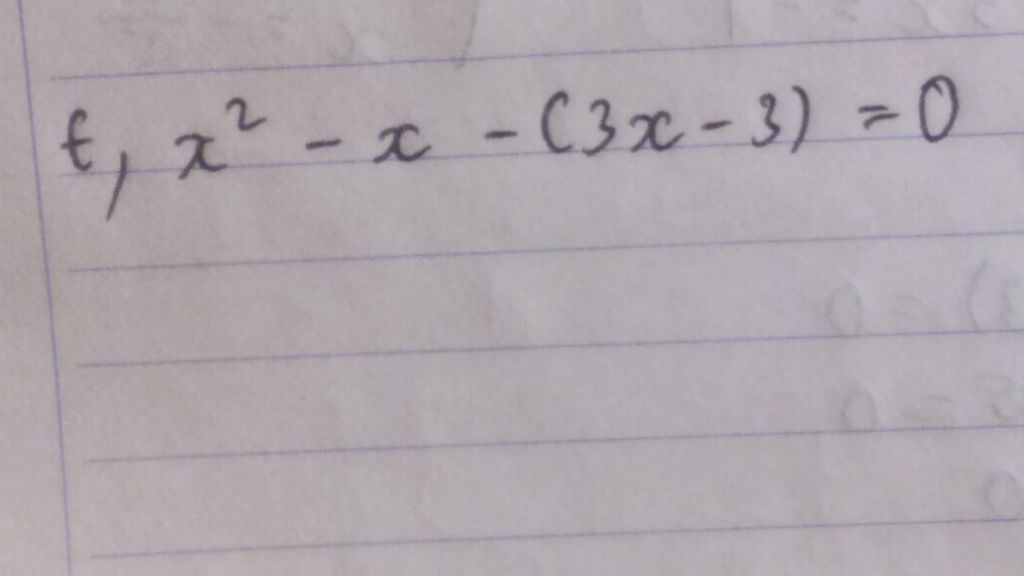 f, x² - x - (3x - 3) = 0